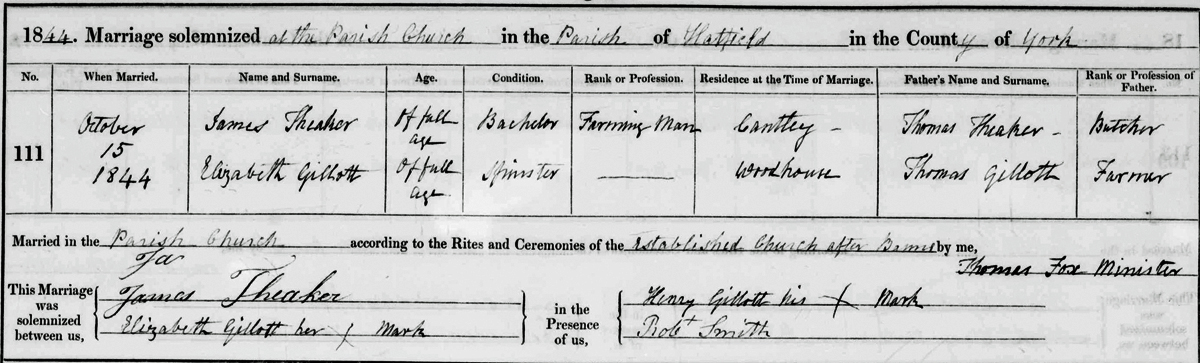 1844. Marriage solemnized at the Parish Church in the Parish of Hatfield in the County of York
No. When Married. Name and Surname. Age. Condition. Rank or Profession. Residence at the Time of Marriage. Father's Name and Surname. Rank or Profession of Father.
111 October 15 1844
James Theaker Of full age Bachelor Farming Man Cantley - Thomas Theaker - Butcher
Elizabeth Gillott Of full age Spinster — Woodhouse Thomas Gillott Farmer
Married in the Parish Church according to the Rites and Ceremonies of the Established Church after Banns by me,
Thomas Fox Minister
This Marriage was solemnized between us,
James Theaker
Elizabeth Gillott her X Mark
in the Presence of us,
Henry Gillott his X Mark
Robt Smith